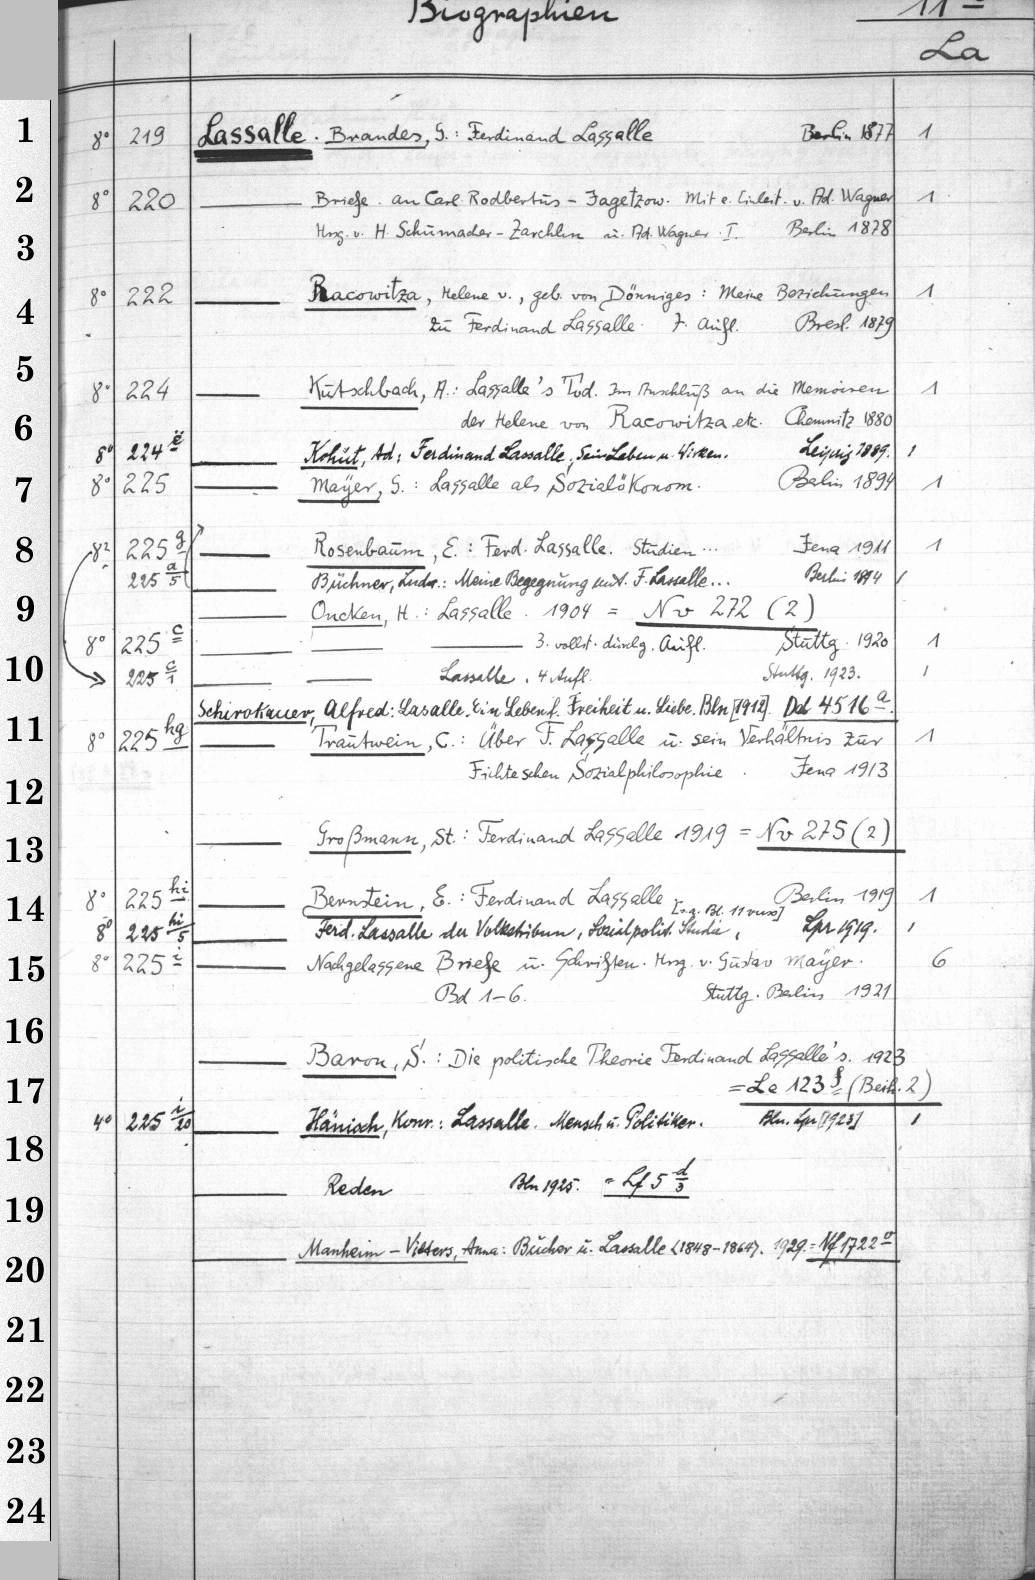 Biographien 11 a
La
1 8° 219 Lassalle. Brandes, G.: Ferdinand Lassalle Berlin 1877 1
2 8° 220 Briefe an Carl Rodbertus-Jagetzow. Mit e. Einleit. v. Ad. Wagner 1
3 Hrsg. v. H. Schumacher-Zarchlin u. Ad. Wagner. I. Berlin 1878
8° 222 Racowitza, Helene v., geb. von Dönniges: Meine Beziehungen 1
4 zu Ferdinand Lassalle. 7. Aufl. Bresl. 1879
5 8° 224 Kutschbach, A.: Lassalle's Tod. Im Anschluß an die Memoiren 1
6 der Helene von Racowitza etc. Chemnitz 1880
8° 224 e Kohut, Ad: Ferdinand Lassalle, Sein Leben u. Wirken. Leipzig 1889. 1
7 8° 225 Mayer, G.: Lassalle als Sozialökonom. Berlin 1894 1
8 8° 225 g Rosenbaum, E.: Ferd. Lassalle. Studien ... Jena 1911 1
225 a/5 Büchner, Ludw.: Meine Begegnung mit F. Lassalle... Berlin 1894 1
9 Oncken, H.: Lassalle. 1904 = Nv 272 (2)
8° 225 c 3. vollst. durchg. Aufl. Stuttg. 1920 1
10 225 c/1 Lassalle. 4 Aufl. Stuttg. 1923. 1
Schirokauer, Alfred: Lasalle. Ein Leben f. Freiheit u. Liebe. Bln [1912]. Dd 4516 a.
11 8° 225 hg Trautwein, C.: Über F. Lassalle u. sein Verhältnis zur 1
12 Fichteschen Sozialphilosophie. Jena 1913
13 Großmann, St.: Ferdinand Lassalle 1919 = Nv 275 (2)
14 8° 225 hi Bernstein, E.: Ferdinand Lassalle Berlin 1919 1
8° 225 hi/5 Ferd. Lassalle der Volkstribun, Sozialpolit. Studie, Lpz 1919. 1
15 8° 225 i Nachgelassene Briefe u. Schriften. Hrsg. v. Gustav Mayer. 6
Bd 1-6. Stuttg. Berlin 1921
16
Baron, S.: Die politische Theorie Ferdinand Lassalle's. 1923
17 = La 123 f (Beih. 2)
4° 225 i/20 Hänisch, Konr.: Lassalle. Mensch u. Politiker. Bln. Lpz [1923] 1
18
19 Reden Bln 1925. = Lf 5 d/3
20 Manheim-Vitters, Anna: Bucher u. Lassalle <1848-1864>. 1929. = Nf 1722 a
21
22
23
24